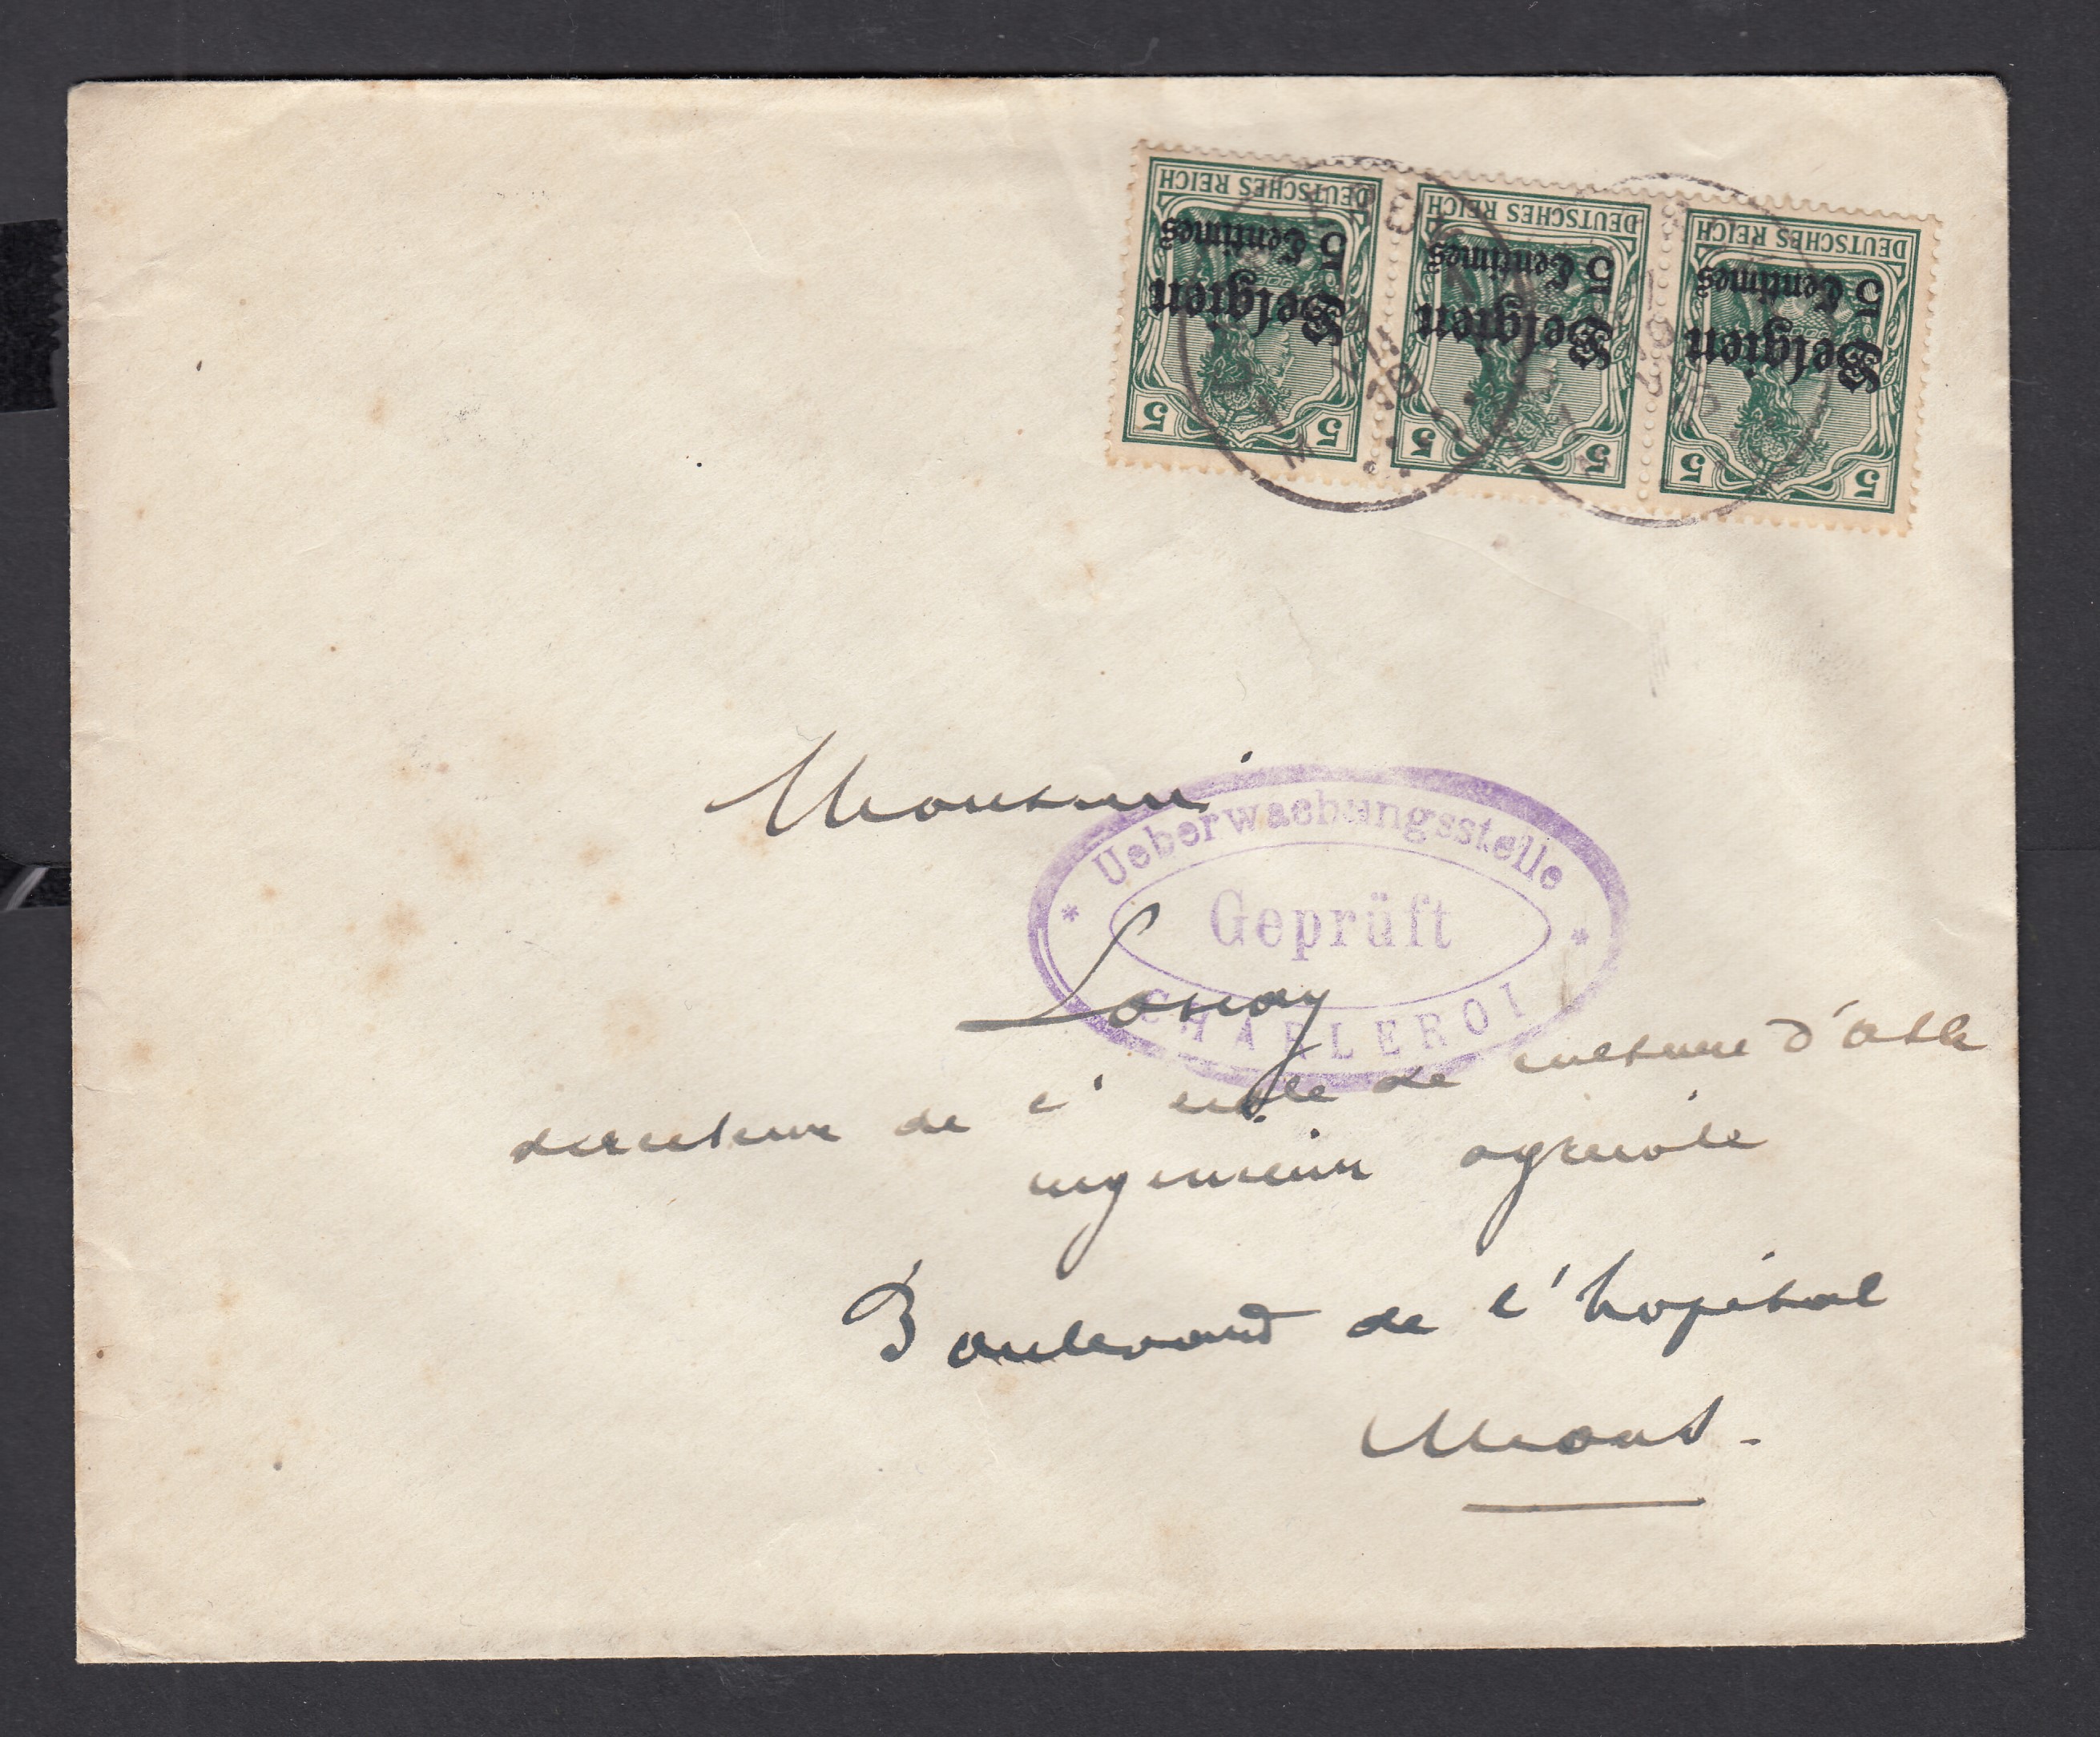 DEUTSCHES REICH
Belgien
5 Centimes
5 5
DEUTSCHES REICH
Belgien
5 Centimes
5 5
DEUTSCHES REICH
Belgien
5 Centimes
5 5
Monsieur
Ueberwachungsstelle
Geprüft
CHARLEROI
Lonay
directeur de l' école de culture d'Ath
ingenieur agricole
Boulevard de l'hopital
Mons.